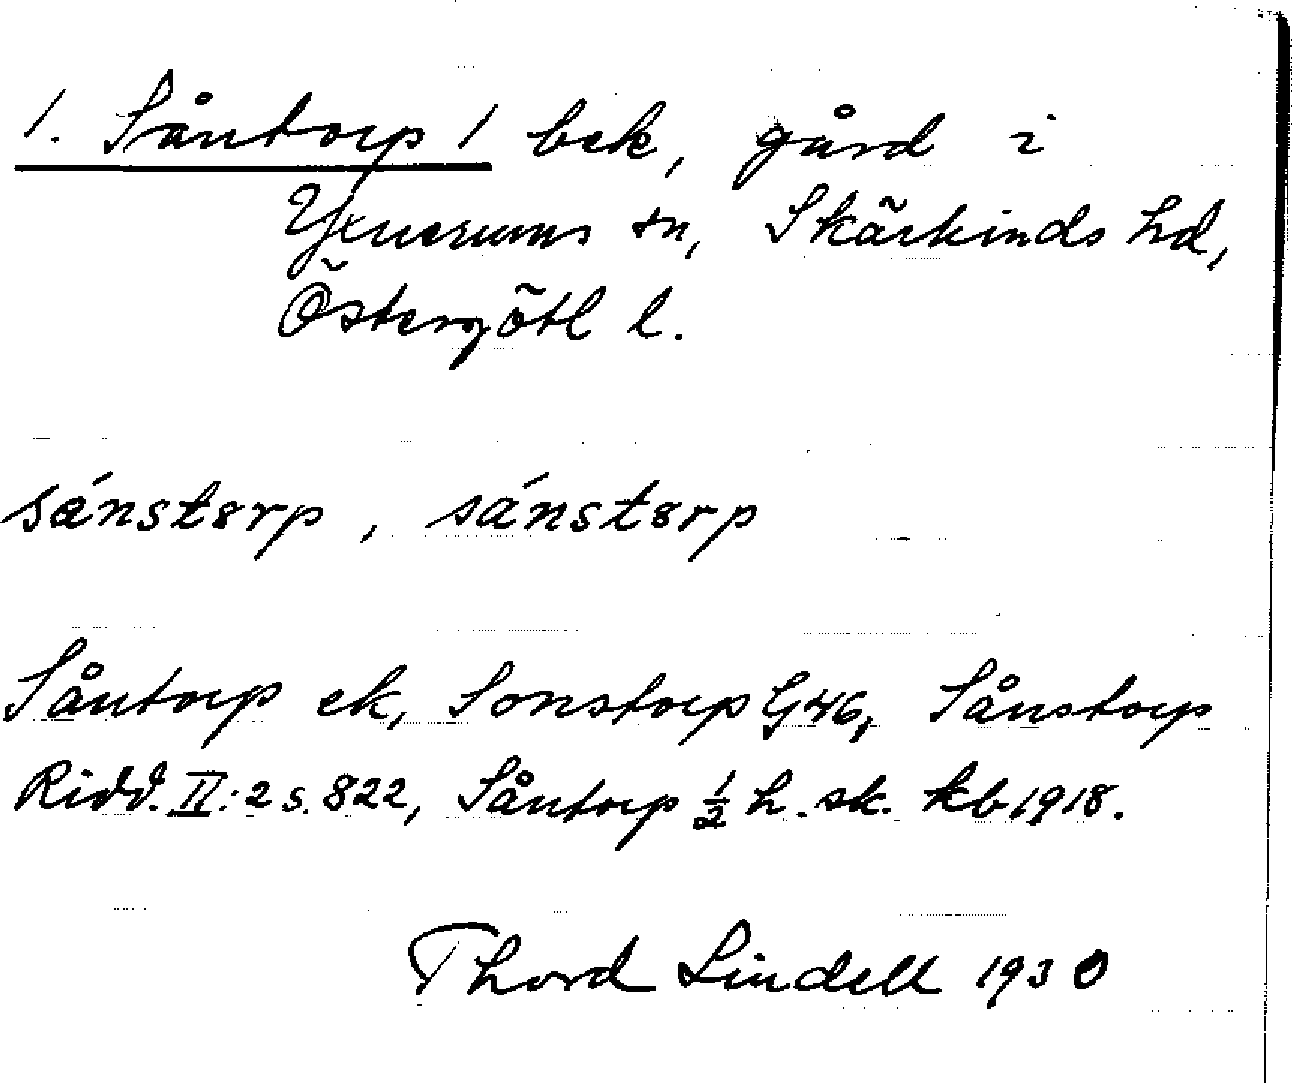 1. Såntorp 1 bek, gård i
Yxnerums sn, Skärkinds hd,
Östergötl l.
sánstɵrp, sánstɵrp
Såntorp ek, Sonstorp G46, Sånstorp
Ridd. II:2 s. 822, Såntorp ½ h. sk. kb 1918.
Thord Lindell 1930